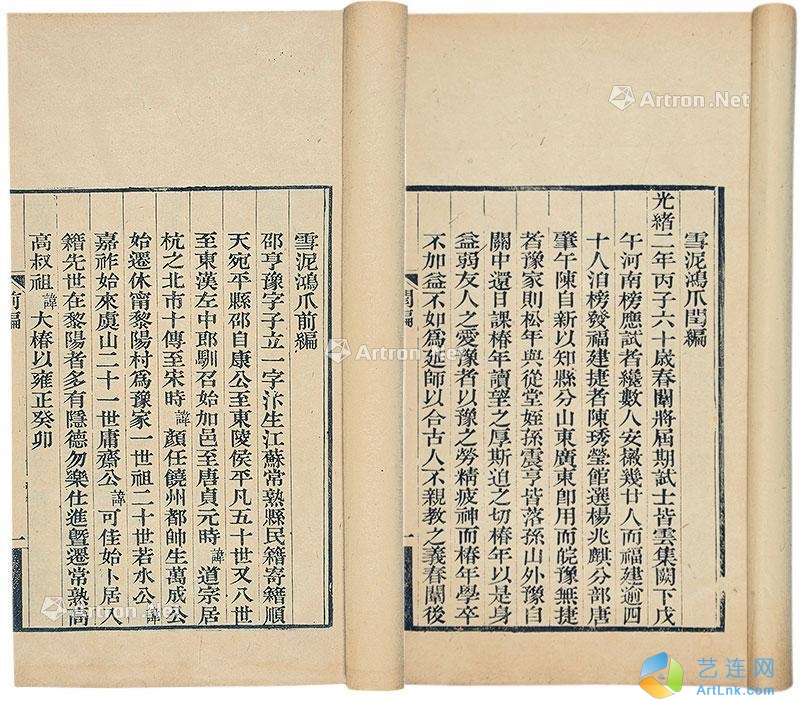 雪泥鴻爪閏編
光緒二年丙子六十歲春闈將屆期試士皆雲集闕下戊
午河南榜應試者纔數人安徽幾廿人而福建逾四
十人洎榜發福建捷者陳琇瑩館選楊兆麒分部唐
肇午陳自新以知縣分山東廣東卽用而皖豫無捷
者豫家則松年與從堂姪孫震亨皆落孫山外豫自
關中還日課椿年讀望之厚斯迫之切椿年以是身
益弱友人之愛豫者以豫之勞精疲神而椿年學卒
不加益不如爲延師以合古人不親教之義春闈後
閏編
一
雪泥鴻爪前編
邵亨豫字子立一字汴生江蘇常熟縣民籍寄籍順
天宛平縣邵自康公至東陵侯平凡五十世又八世
至東漢左中郎馴召始加邑至唐貞元時諱道宗居
杭之北市十傳至宋時諱顏任饒州都帥生萬成公
始遷休甯黎陽村爲豫家一世祖二十世若水公諱
嘉祚始來虞山二十一世庸齋公諱可佳始卜居入
籍先世在黎陽者多有隱德勿樂仕進曁遷常熟高
高叔祖諱大椿以雍正癸卯
前編
一
Artron.Net
Artron.Net
Artron.Net
Artron.Net
艺连网
ArtLnk.com